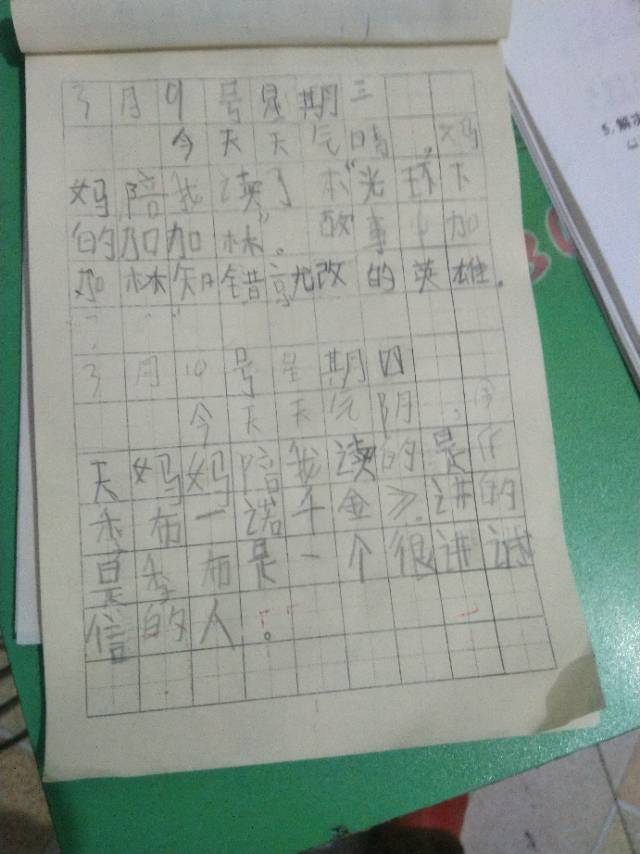 3月9号星期三
今天天气晴,妈
妈陪我读了本“光环下
的加加林”。故事中加
加林知错就改的英雄。
3月10号星期四
今天天气阴,今
天妈妈陪我读的是《
季布一诺千金》.讲的
是季布是一个很讲诚
信的人。
5.解决